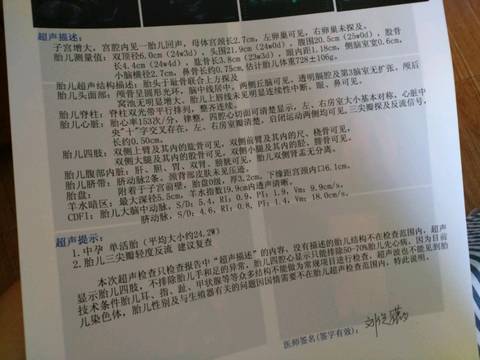 超声描述:
子宫增大,宫腔内见一胎儿回声,母体宫颈长2.7cm,左卵巢可见,右卵巢未探及。
胎儿测量值: 双顶径6.0cm(24w3d),头围21.9cm(24w0d),腹围20.5cm(25w0d),股骨
长4.4cm(24w4d),肱骨长3.8cm(23w3d),眼内距1.18cm,侧脑室宽0.6cm,
小脑横径2.7cm,鼻骨长约0.75cm,估计胎儿体重728±106g。
胎儿超声结构描述: 胎头于趾骨联合上方探及
胎儿头面部: 颅骨呈圆形光环,脑中线居中,两侧丘脑可见,透明隔腔及第3脑室无扩张,颅后
窝池无明显增大,胎儿上唇线未见明显连续性中断,眼、鼻可见。
胎儿脊柱: 脊柱双光带平行排列,整齐连续。
胎儿心脏: 胎心率153次/分,律整,四腔心切面可清楚显示,左、右房室大小基本对称,心脏中
央"十"字交叉存在,左、右房室瓣清楚,启闭运动两侧均可见,三尖瓣探及反流信号,
长约0.50cm。
胎儿四肢: 双侧上臂及其内的肱骨可见,双侧前臂及其内的尺、桡骨可见,
双侧大腿及其内的股骨可见,双侧小腿及其内的胫、腓骨可见。
胎儿腹部内脏: 肝、胆、胃、双肾、膀胱可见,胎儿双侧肾盂无分离。
胎儿脐带: 脐动脉2条,颈背部皮肤未见压迹。
胎盘: 附着于子宫前壁,胎盘0级,厚3.2cm,下缘距宫颈内口6.1cm。
羊水暗区: 最大深径5.5cm,羊水指数19.9cm内透声清晰。
CDFI: 胎儿大脑中动脉,S/D: 5.4, RI: 0.9, PI: 1.9, Vm: 9.9cm/s,
脐动脉,S/D: 4.6, RI: 0.8, PI: 1.4, Vm: 18.0cm/s.
超声提示:
1.中孕 单活胎(平均大小约24.2W)
2.胎儿三尖瓣轻度反流 建议复查
本次超声检查只检查报告中"超声描述"的内容,没有描述的胎儿结构不在检查范围内,超声
显示胎儿四肢,不排除胎儿手和足的异常,胎儿四腔心显示只能排除50-70%胎儿先心病,因为目前
技术条件胎儿耳、指、趾、甲状腺等众多结构不能做为常规项目进行检查,超声波也不能见到胎
儿染色体,胎儿性别及与生殖器有关的问题因国情需要不在胎儿超声检查范围内,特此说明。
医师签名(签字有效):